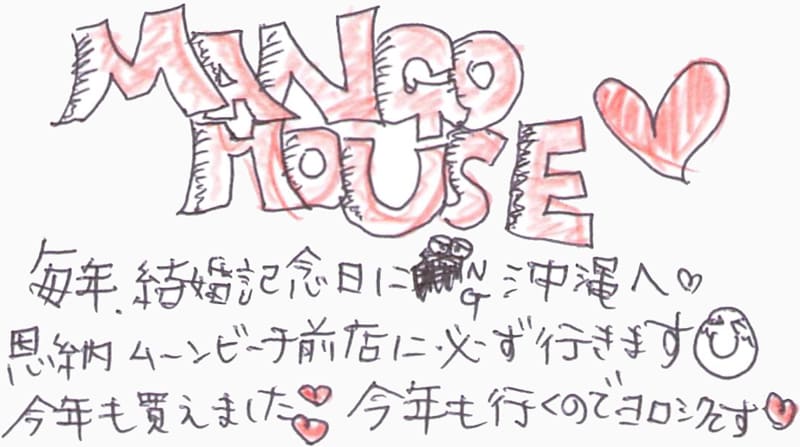 MANGO
HOUSE
毎年、結婚記念日に NG 沖縄へ♡
恩納ムーンビーチ前店に必ず行きます
今年も買えました 今年も行くのでヨロシクです